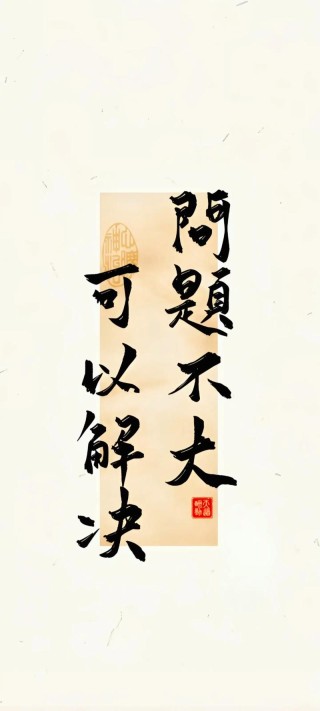 問題不大
可以解决